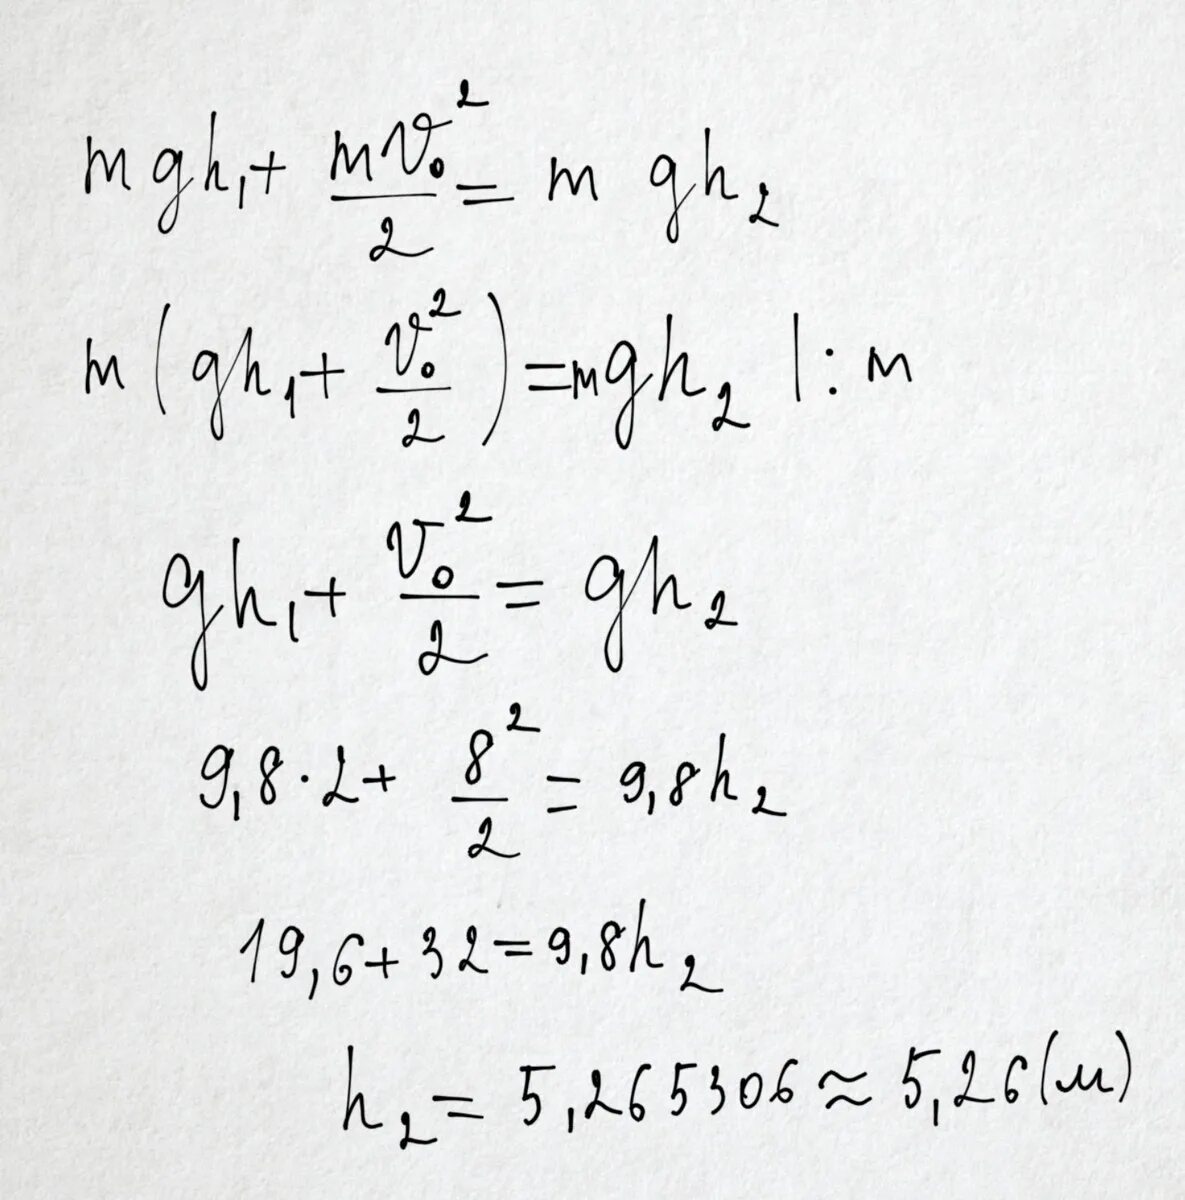 mgh₁ + mv₀²/2 = mgh₂
m(gh₁ + v₀²/2) = mgh₂ |: m
gh₁ + v₀²/2 = gh₂
9,8·2 + 8²/2 = 9,8h₂
19,6 + 32 = 9,8h₂
h₂ = 5,265306 ≈ 5,26(м)